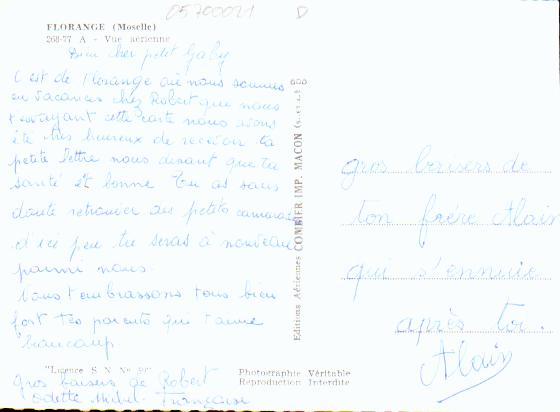 05700021 D
FLORANGE (Moselle)
268-77 A - Vue aérienne
Bien cher petit Gaby
C'est de Florange où nous sommes
en vacances chez Robert que nous
t'envoyant cette carte nous avons
été très heureux de recevoir ta
petite lettre nous disant que ta
santé est bonne Tu as sans
doute retrouver des petits camarades
d'ici peu tu seras à nouveau
parmi nous.
Nous t'embrassons tous bien
fort tes parents qui t'aime
beaucoup
"Licence S N N° 99"
gros baisers de Robert
Odette Michel Françoise
Editions Aériennes COMBIER IMP. MACON (S.-et-L.)
Photographie Véritable
Reproduction Interdite
gros baisers de
ton frère Alain
qui s'ennuie
après toi.
Alain